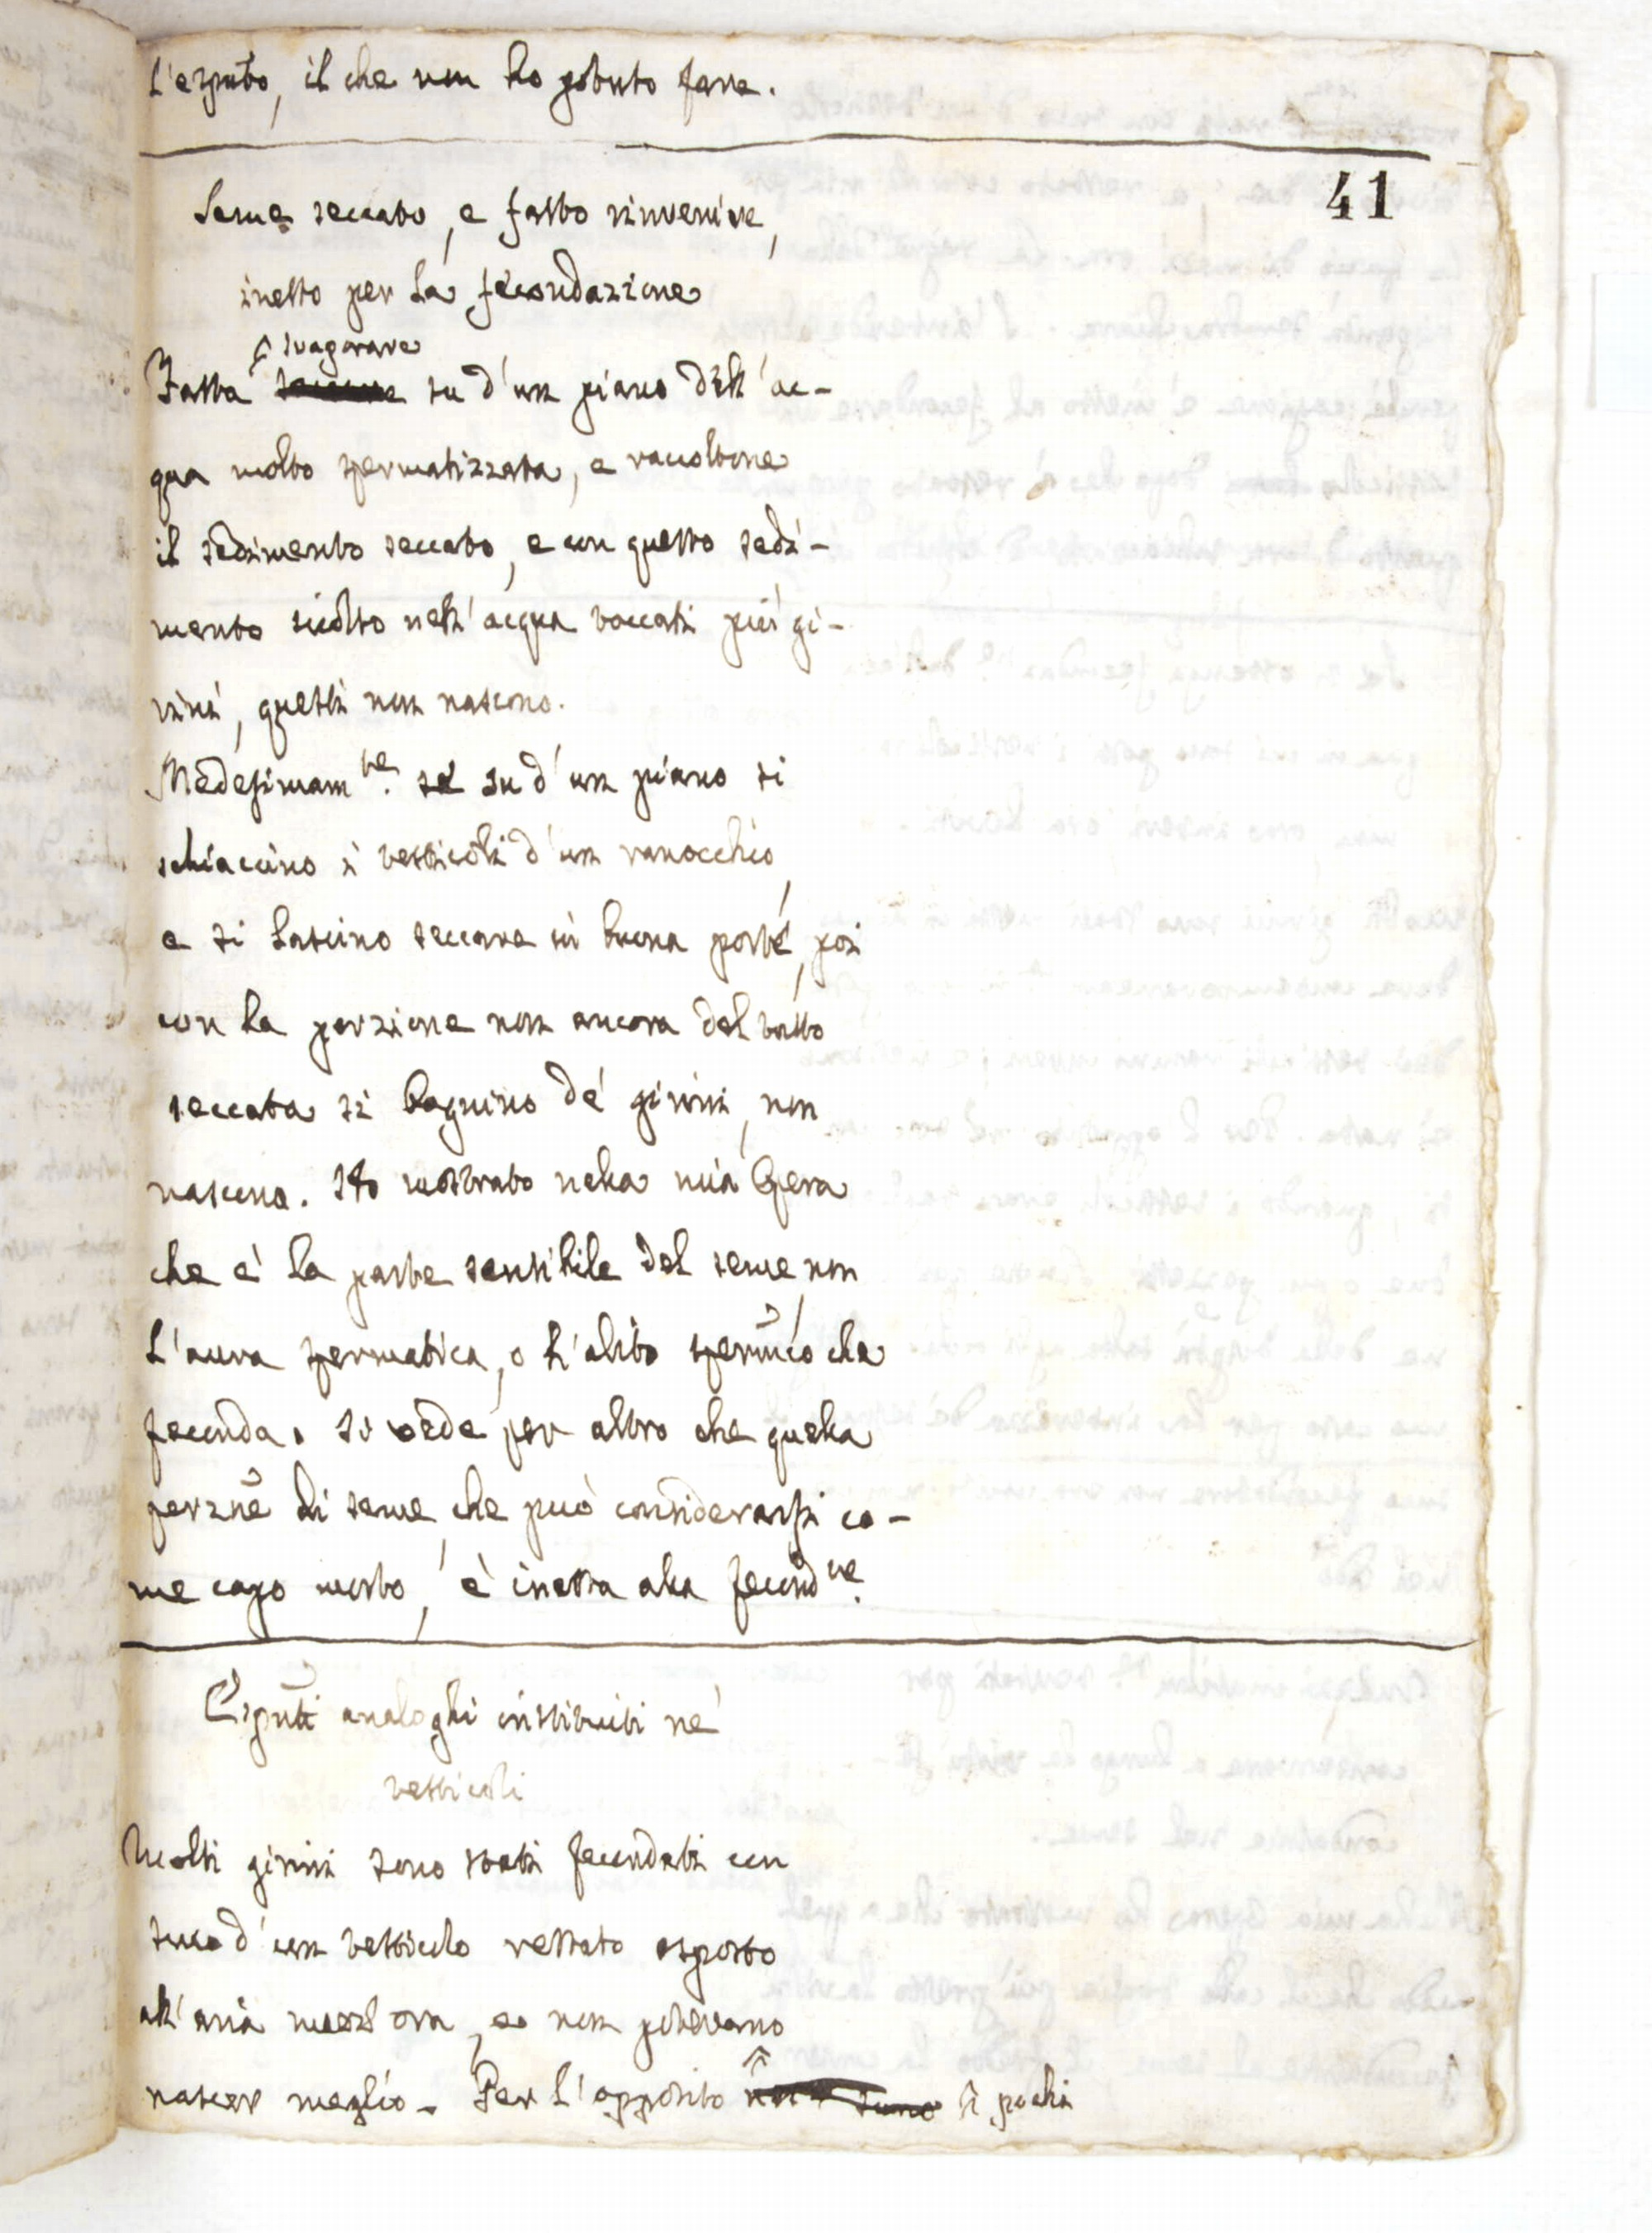 l'esp̃to, il che non ho potuto fare.
41
Seme seccato, e fatto rinvenire,
inetto per la fecondazione
svaporare
Fatta su d'un piano dell'ac-
qua molto spermatizzata, e raccoltone
il sedimento seccato, e con questo sedi-
mento sciolto nell'acqua toccati più gi-
rini, questi non nascono.
Medesimam.te se su d'un piano si
schiaccino i testicoli d'un ranocchio,
e si lascino seccare in buona parte, poi
con la porzione non ancora del tutto
seccata si bagnino de' girini, non
nascono. Ho mostrato nella mia Opera
che è la parte sensibile del seme, non
l'aura spermatica, o l'alito sperm̃co che
feconda. Si vede per altro che quella
porzñe di seme, che può considerarsi co-
me capo morto, è inetta alla fecond.ne
Esp̃ti analoghi instituiti ne'
testicoli
Molti girini sono stati fecondati con
suco d'un testicolo restato esposto
all'aria mezz'ora, e non potevano
nascer meglio. Per l'opposito pochi